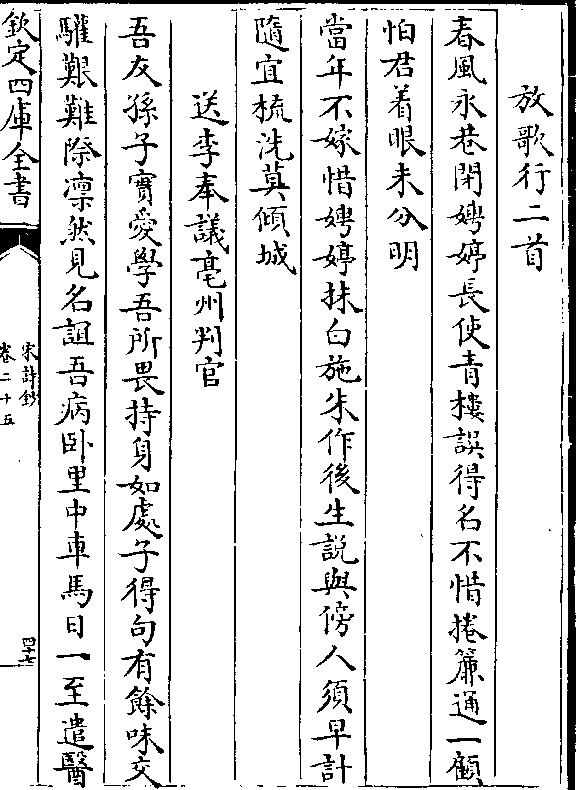 放歌行二首
春風永巷閉娉婷長使青樓誤得名不惜捲簾通一顧
怕君着眼未分明
當年不嫁惜娉婷抹白施朱作後生說與傍人須早計
隨宜梳洗莫傾城
送李奉議亳州判官
吾友孫子實愛學吾所畏持身如處子得句有餘味交
驩艱難際凛然見名誼吾病卧里中車馬日一至遣醫
欽定四庫全書
宋詩鈔
卷二十五
四十七